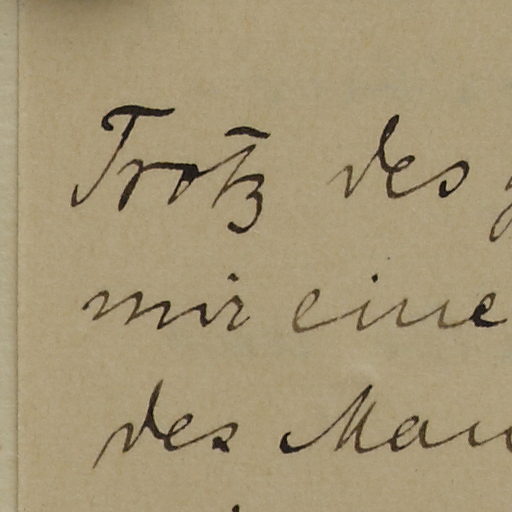 Trotz des
mir eine
des